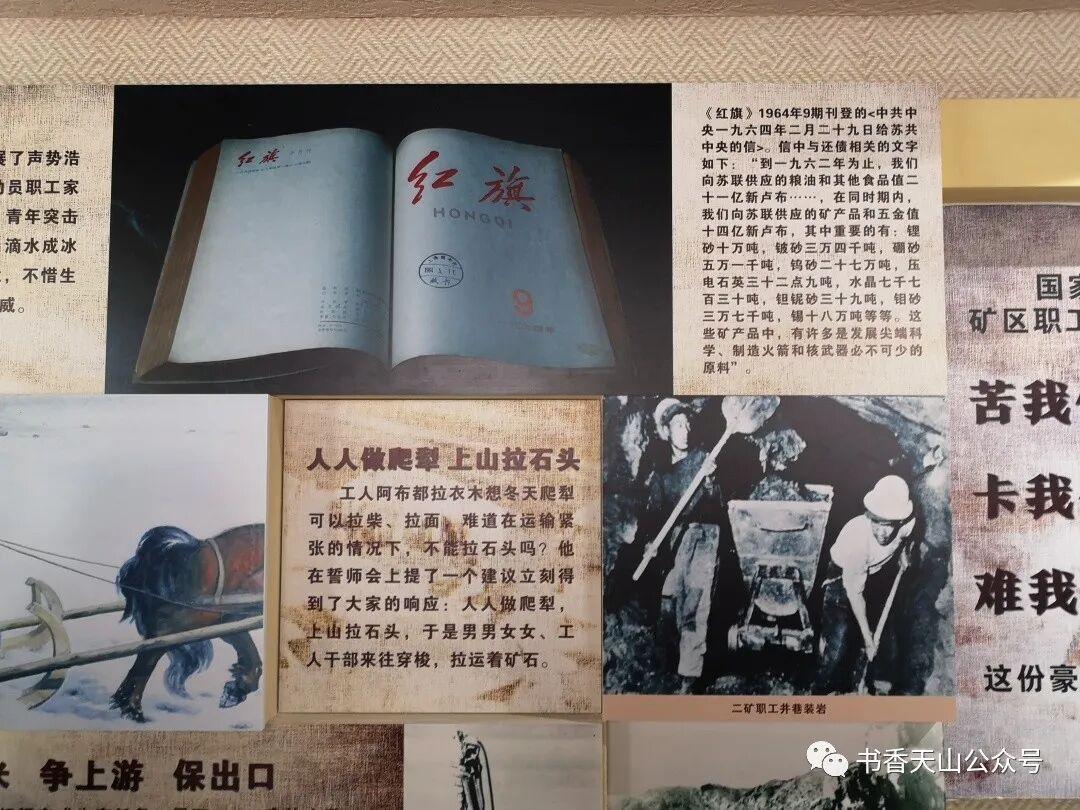 展了声势浩
动员职工家
青年突击
滴水成冰
，不惜生
威。
红旗
红旗
HONGQI
9
《红旗》1964年9期刊登的<中共中
央一九六四年二月二十九日给苏共
中央的信>。信中与还债相关的文字
如下：“到一九六二年为止，我们
向苏联供应的粮油和其他食品值二
十一亿新卢布……，在同时期内，
我们向苏联供应的矿产品和五金值
十四亿新卢布，其中重要的有：锂
砂十万吨，铍砂三万四千吨，硼砂
五万一千吨，钨砂二十七万吨，压
电石英三十二点九吨，水晶七千七
百三十吨，钽铌砂三十九吨，钼砂
三万七千吨，锡十八万吨等等。这
些矿产品中，有许多是发展尖端科
学、制造火箭和核武器必不可少的
原料”。
国家
矿区职工
苦我
卡我
难我
这份豪
人人做爬犁 上山拉石头
工人阿布都拉衣木想冬天爬犁
可以拉柴、拉面，难道在运输紧
张的情况下，不能拉石头吗？他
在誓师会上提了一个建议立刻得
到了大家的响应：人人做爬犁，
上山拉石头，于是男男女女、工
人干部来往穿梭，拉运着矿石。
二矿职工井巷装岩
争上游 保出口
书香天山公众号